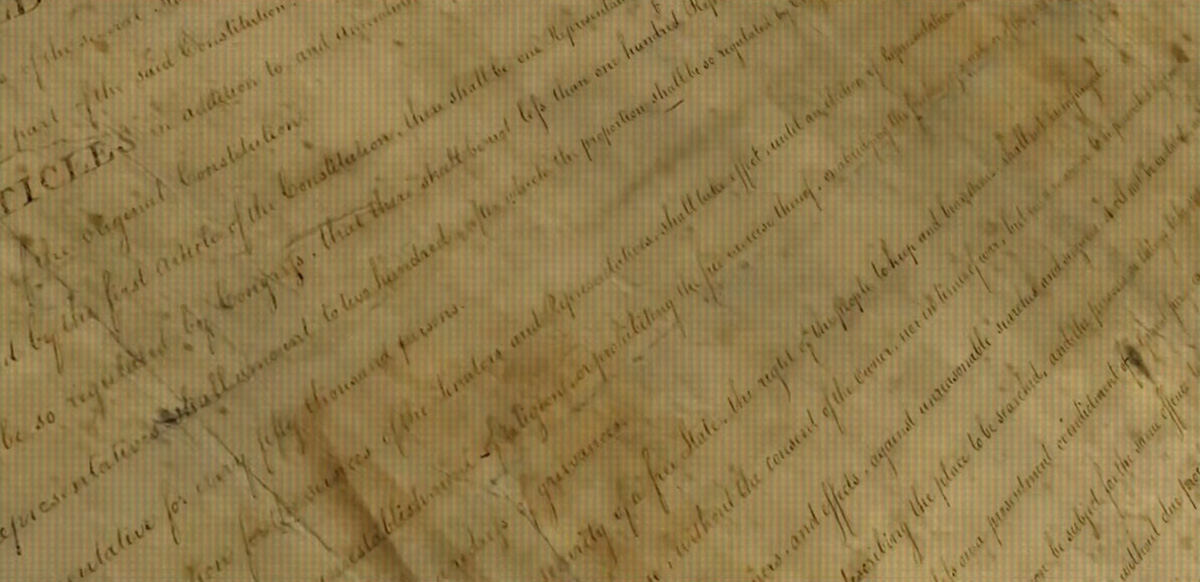 of the several
part of the said Constitution.
TICLES in addition to, and
the original Constitution.
d by the first Article of the Constitution, there shall be one Represent
be so regulated by Congress, that there shall be not less than one hundred Rep
epresentatives shall amount to two hundred, after which the proportion shall be so regulated by
entative for every fifty thousand persons.
for services of the Senators and Representatives, shall take effect, until an election of Representatives
establishment of religion, or prohibiting the free exercise thereof, or abridging the
redress of grievances.
urity of a free State, the right of the people to keep and bear arms shall not be infringed.
without the consent of the Owner, nor in time of war, but in a manner to be prescribed by
pers, and effects, against unreasonable searches and seizures, shall not be violated
escribing the place to be searched, and the persons or things to be
on a presentment or indictment of
be subject for the same offence
without due pro